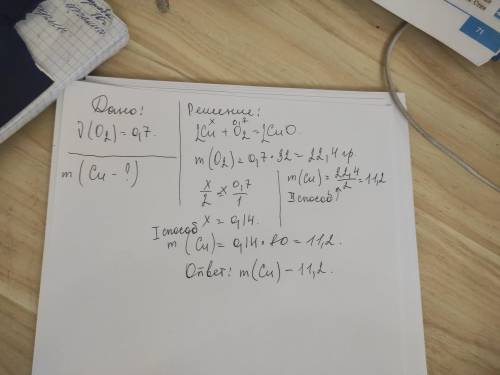 Дано:
ν(O₂) = 0,7.
m (Cu - ?)
Решение:
x 0,7
2Cu + O₂ = 2CuO.
m(O₂) = 0,7 · 32 = 22,4 гр.
x/2 = 0,7/1
x = 0,14.
m(Cu) = 22,4/2 = 11,2
II способ
I способ
m (Cu) = 0,14 · 80 = 11,2.
Ответ: m(Cu) - 11,2.
71